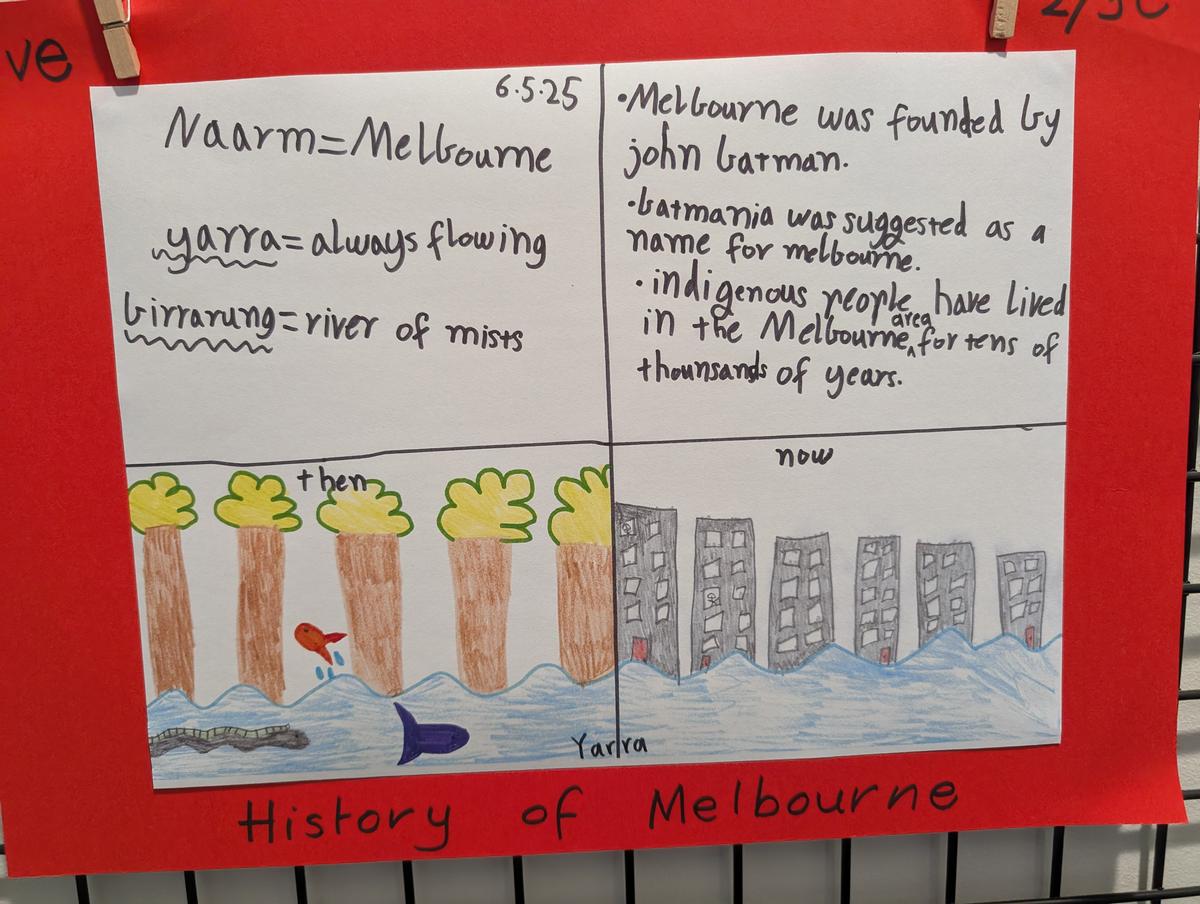 ve
6.5.25
Naarm=Melbourne
yarra=always flowing
birrarung=river of mists
•Melbourne was founded by
john batman.
•batmania was suggested as a
name for melbourne.
•indigenous people have lived
in the Melbourne area for tens of
thounsands of years.
then
now
Yarra
History of Melbourne